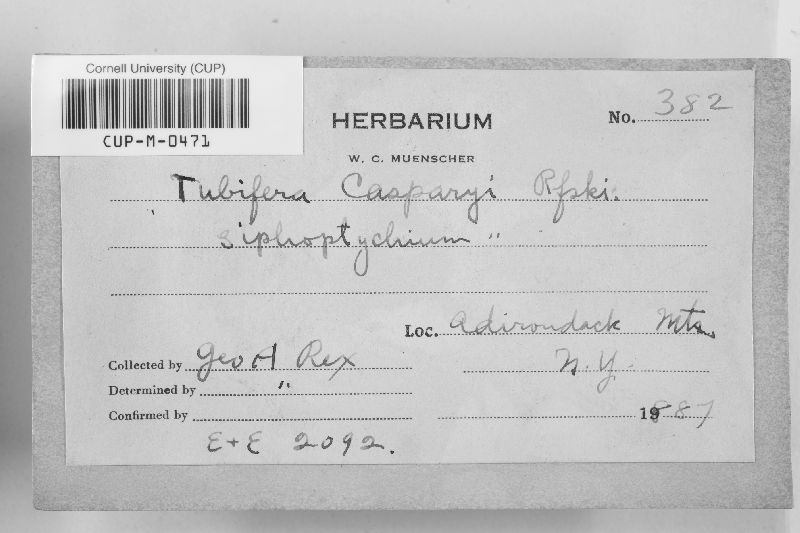 Cornell University (CUP)
CUP-M-0471
HERBARIUM
No. 382
W. C. MUENSCHER
Tubifera Casparyi Rfski.
Siphoptychium "
Loc. Adirondack Mts.
N.Y.
Collected by Geo A Rex
Determined by "
Confirmed by
1887
E+E 2092.